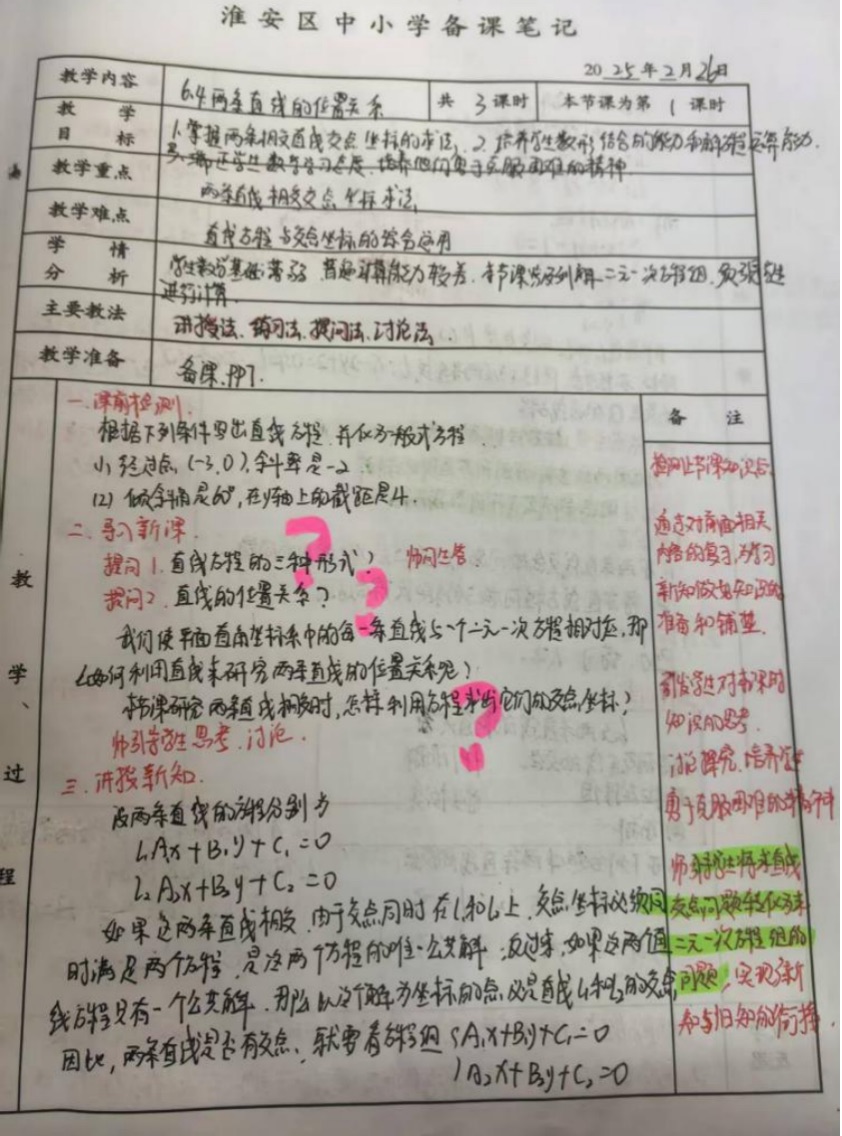 淮安区中小学备课笔记
2025年2月26日
教学内容 6.4两条直线的位置关系 共 3 课时 本节课为第 1 课时
教学目标 1.掌握两条相交直线交点坐标的求法, 2.培养学生数形结合的能力和解方程运算能力.
3.端正学生数学学习态度,培养他们勇于克服困难的精神.
教学重点 两条直线相交交点坐标求法
教学难点 直线方程与交点坐标的综合运用
学情分析 学生数学基础薄弱,普遍计算能力较差.本节课涉及到解二元一次方程组,
进行计算.
主要教法 讲授法、练习法、提问法、讨论法.
教学准备 备课.PPT.
教学、过程
一.课前检测.
根据下列条件写出直线方程,并化为一般式方程.
(1) 经过点(-3,0),斜率是-2
(2) 倾斜角是60°,在y轴上的截距是4.
二.导入新课.
提问1.直线方程的三种形式? 师问生答
提问2.直线的位置关系?
我们使平面直角坐标系中的每一条直线与一个二元一次方程相对应,那
么如何利用直线来研究两条直线的位置关系呢?
本节课研究两条直线相交时,怎样利用方程求出它们的交点坐标?
师引导学生思考.讨论.
三.讲授新知.
设两条直线的方程分别为
L₁A₁x+B₁y+C₁=0
L₂A₂x+B₂y+C₂=0
如果这两条直线相交,由于交点同时在l₁和l₂上,交点坐标必须同
时满足两个方程,是这两个方程的唯一公共解;反过来,如果这两个直
线方程只有一个公共解,那么以这个解为坐标的点必是直线l₁和l₂的交点
因此,两条直线是否有交点,就要看方程组{A₁x+B₁y+C₁=0
A₂x+B₂y+C₂=0
备 注
检测上节课知识点.
通过对前面相关
内容的复习,为学习
新知做好知识的
准备和铺垫.
引发学生对本课时
知识的思考.
讨论探究.培养学生
勇于克服困难的精神
师引导学生将求直线
交点问题转化为求
二元一次方程组的
问题,实现新
知与旧知的衔接.